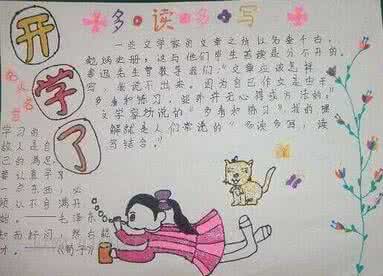 多读多写
开学了
名人名言
一些文学家的文章之所以名垂千古,
彪炳史册,这与他们毕生苦读是分不开的。
鲁迅先生曾教导我们:“文章应该怎样
写,我说不出来,因为自己作文是由于
多看和练习,此外并无心得或方法的。”
文学家所说的“多看和练习”我的理
解就是人们常说的“多读多写,读
写结合。”
学习的
敌人是自
己的满足,
要认真学习
一点东西,必
须从不自满开
始。——毛泽东
知而好问,然后能
才。——《荀子》